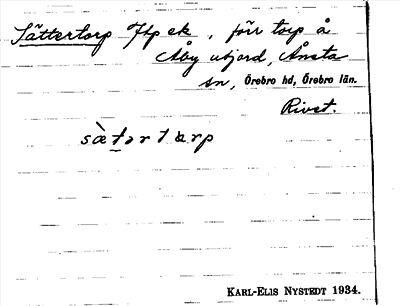 Sättertorp Htp ek, förr torp å
Åby utjord, Ånsta
sn, Örebro hd, Örebro län.
Rivet.
sæ̀tərtarp
KARL-ELIS NYSTEDT 1934.